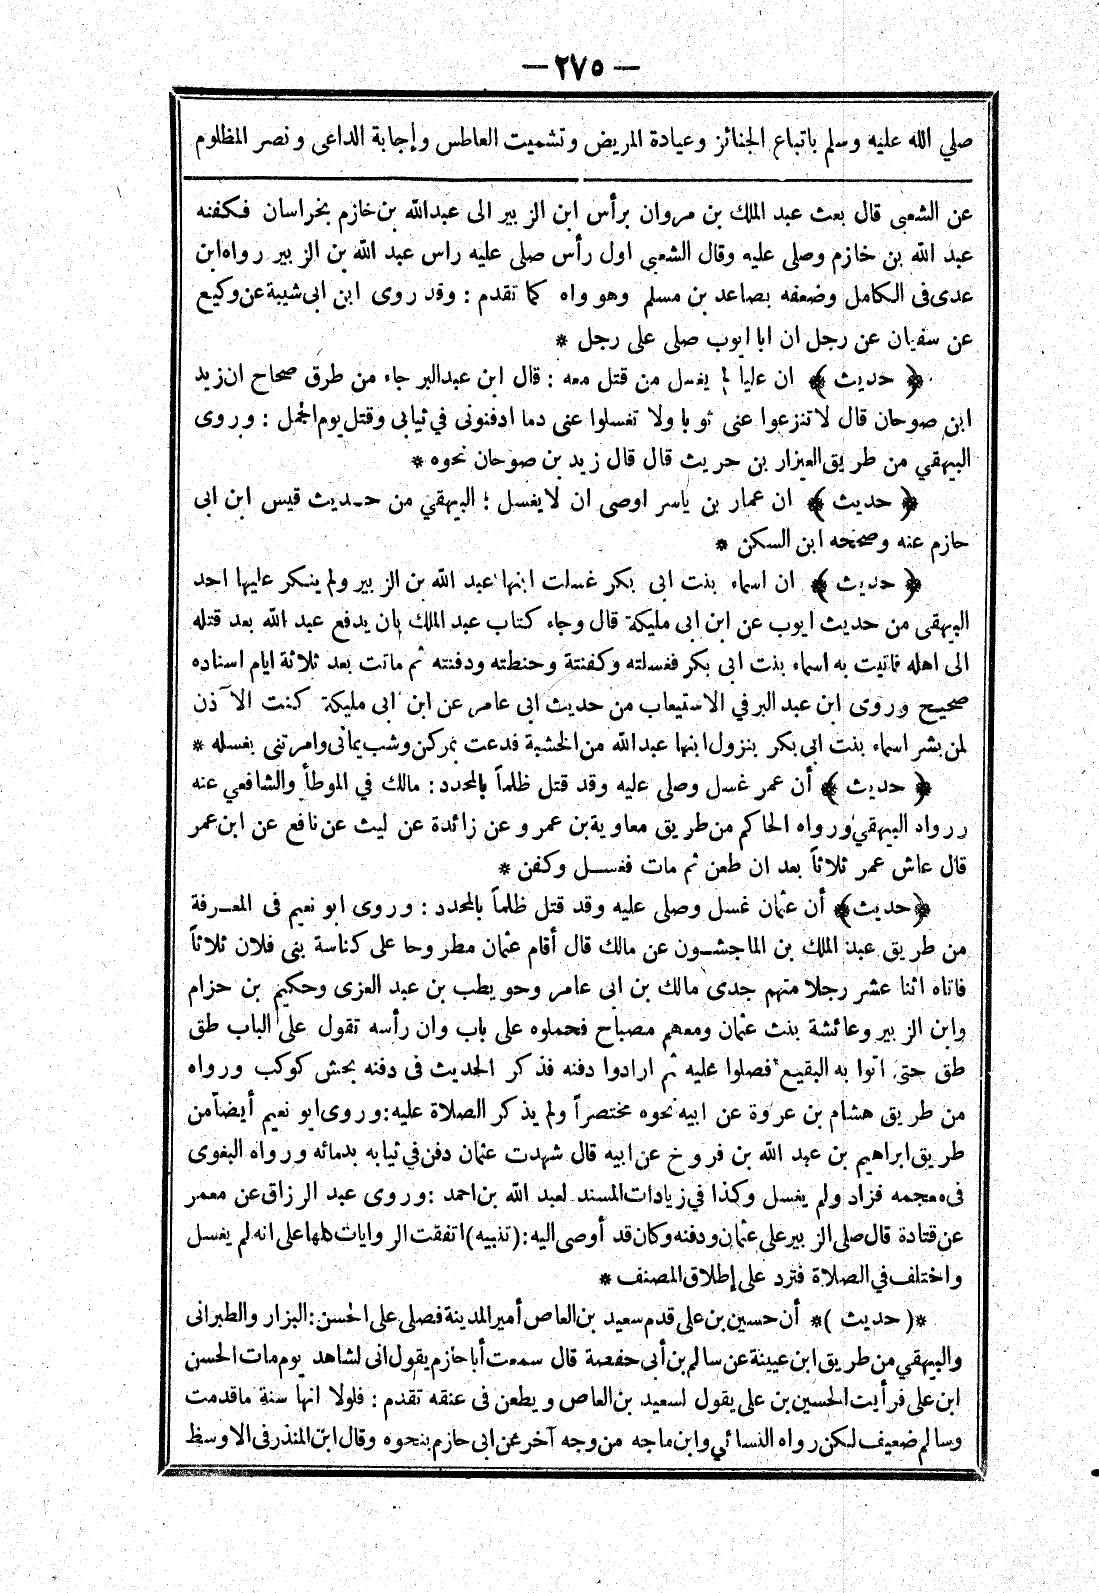 — ٢٧٥ —
صلي الله عليه وسلم باتباع الجنائز وعيادة المريض وتشميت العاطس وإجابة الداعى ونصر المظلوم
عن الشعبى قال بعث عبد الملك بن مروان برأس ابن الزبير الى عبدالله بن خازم بخراسان فكفنه
عبد الله بن خازم وصلى عليه وقال الشعبى اول رأس صلى عليه راس عبد الله بن الزبير رواه ابن
عدى فى الكامل وضعفه بصاعد بن مسلم وهو واه كما تقدم : وقد روى ابن ابى شيبة عن وكيع
عن سفيان عن رجل ان ابا ايوب صلى على رجل *
﴿ حديث ﴾ ان عليا لم يغسل من قتل معه : قال ابن عبدالبر جاء من طرق صحاح ان زيد
ابن صوحان قال لا تنزعوا عنى ثوبا ولا تغسلوا عنى دما ادفنونى في ثيابى وقتل يوم الجمل : وروى
البيهقي من طريق العيزار بن حريث قال قال زيد بن صوحان نحوه *
﴿ حديث ﴾ ان عمار بن ياسر اوصى ان لا يغسل ؛ البيهقي من حديث قيس ابن ابى
حازم عنه وصححه ابن السكن *
﴿ حديث ﴾ ان اسماء بنت ابى بكر غسلت ابنها عبد الله بن الزبير ولم ينكر عليها احد
البيهقى من حديث ايوب عن ابن ابى مليكة قال وجاء كتاب عبد الملك بان يدفع عبد الله بعد قتله
الى اهله فاتيت به اسماء بنت ابى بكر فغسلته وكفنتة وحنطته ودفنته ثم ماتت بعد ثلاثة ايام اسناده
صحيح وروى ابن عبد البر في الاستيعاب من حديث ابى عامر عن ابن ابى مليكة كنت الآذن
لمن بشر اسماء بنت ابى بكر بنزول ابنها عبدالله من الخشبة فدعت بمركن وشب يمانى وامرتنى بغسله *
﴿ حديث ﴾ أن عمر غسل وصلى عليه وقد قتل ظلماً بالمحدد : مالك في الموطأ والشافعي عنه
ررواه البيهقي ورواه الحاكم من طريق معاوية بن عمرو عن زائدة عن ليث عن نافع عن ابن عمر
قال عاش عمر ثلاثاً بعد ان طعن ثم مات فغسل وكفن *
﴿ حديث ﴾ أن عثمان غسل وصلى عليه وقد قتل ظلماً بالمحدد : وروى ابو نعيم فى المعرفة
من طريق عبد الملك بن الماجشون عن مالك قال أقام عثمان مطروحا على كناسة بنى فلان ثلاثاً
فاتاه اثنا عشر رجلا منهم جدى مالك بن ابى عامر وحويطب بن عبد العزى وحكيم بن حزام
وابن الزبير وعائشة بنت عثمان ومعهم مصباح فحملوه على باب وان رأسه تقول على الباب طق
طق حتى اتوا به البقيع فصلوا عليه ثم ارادوا دفنه فذكر الحديث فى دفنه بحش كوكب ورواه
من طريق هشام بن عروة عن ابيه نحوه مختصراً ولم يذكر الصلاة عليه : وروى ابو نعيم أيضاً من
طريق ابراهيم بن عبد الله بن فروخ عن ابيه قال شهدت عثمان دفن في ثيابه بدمائه ورواه البغوى
فى معجمه فزاد ولم يغسل وكذا في زيادات المسند لعبد الله بن احمد : وروى عبد الرزاق عن معمر
عن قتادة قال صلى الزبير على عثمان ودفنه وكان قد أوصى اليه : (تنبيه) اتفقت الروايات كلها على انه لم يغسل
واختلف في الصلاة فترد على إطلاق المصنف *
*( حديث )* أن حسين بن على قدم سعيد بن العاص أمير المدينة فصلى على الحسن : البزار والطبرانى
والبيهقي من طريق ابن عيينة عن سالم بن أبى حفصة قال سمعت أبا حازم يقول انى لشاهد يوم مات الحسن
ابن على فرأيت الحسين بن على يقول لسعيد بن العاص ويطعن فى عنقه تقدم : فلولا انها سنة ماقدمت
وسالم ضعيف لكن رواه النسائي وابن ماجه من وجه آخر عن ابى حازم بنحوه وقال ابن المنذر فى الاوسط